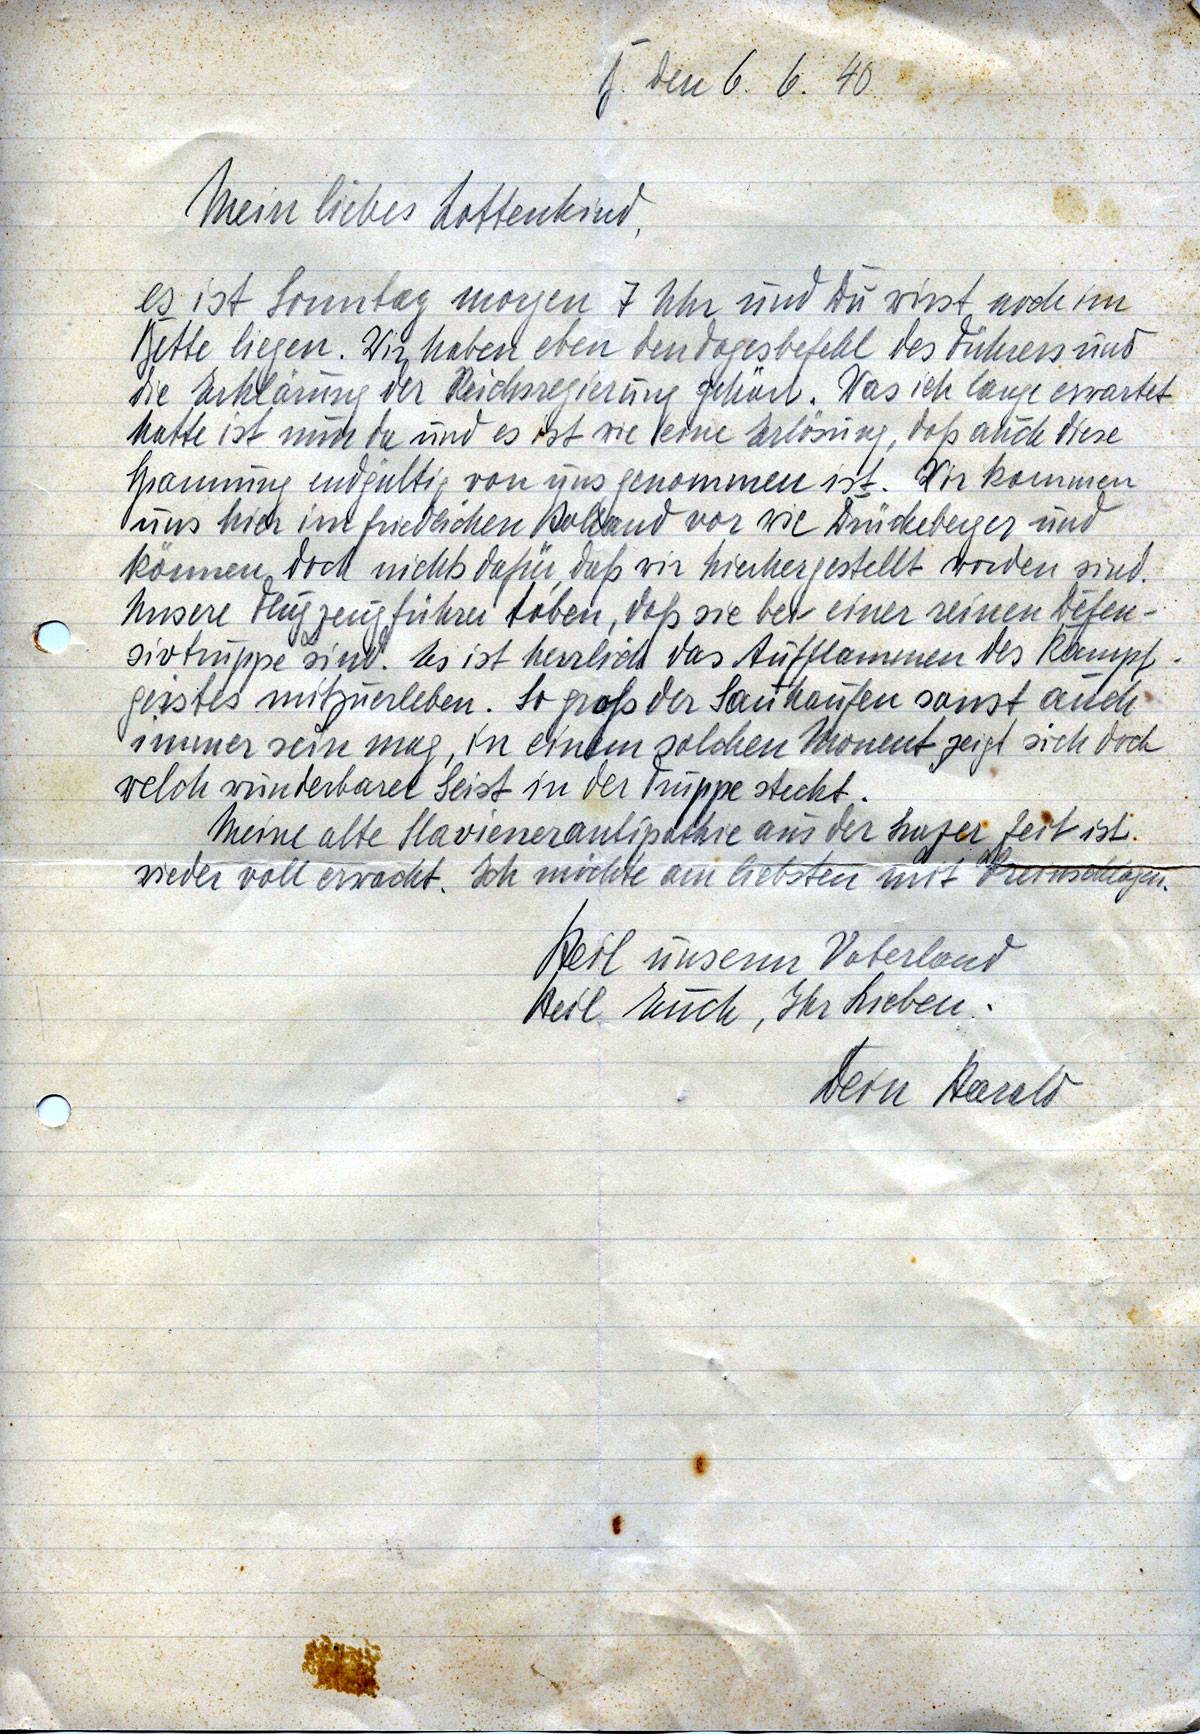 den 6. 6. 40
Mein liebes Lottenkind,
es ist Sonntag morgen 7 Uhr und Du wirst noch im
Bette liegen. Wir haben eben den Tagesbefehl des Führers und
die Erklärung der Reichsregierung gehört. Was ich lange erwartet
hatte ist nun da und es ist wie eine Erlösung, daß auch diese
Spannung endgültig von uns genommen ist. Wir kommen
uns hier im friedlichen Holland vor wie Drückeberger und
können doch nichts dafür, daß wir hierhergestellt worden sind.
Unsere Flugzeugführer toben, daß sie bei einer reinen Defen-
sivtruppe sind. Es ist herrlich das Aufflammen des Kampf-
geistes mitzuerleben. So groß der Sauhaufen sonst auch
immer sein mag, in einem solchen Moment zeigt sich doch
welch wunderbarer Geist in der Truppe steckt.
Meine alte Slavienerantipathie aus der Zeit ist
wieder voll erwacht. Ich möchte am liebsten mit dreinschlagen.
Heil unserm Vaterland
Heil Euch, Ihr Lieben.
Dein Harald